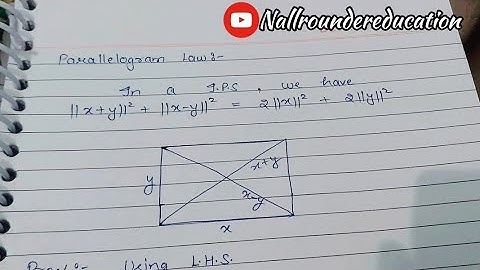 Nallroundereducation
Parallelogram Law:-
In a I.P.S, we have
||x+y||² + ||x-y||² = 2||x||² + 2||y||²
x+y
y
x-y
x
Proof:- Using L.H.S.